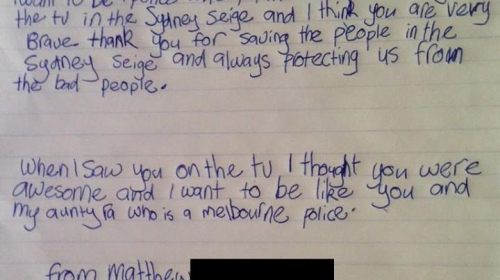 the tv in the Sydney Seige and I think you are very
Brave thank you for saving the people in the
Sydney Seige and always protecting us from
the bad people.
when I saw you on the tv I thought you were
awesome and I want to be like you and
my aunty who is a melbourne police.
from matthew